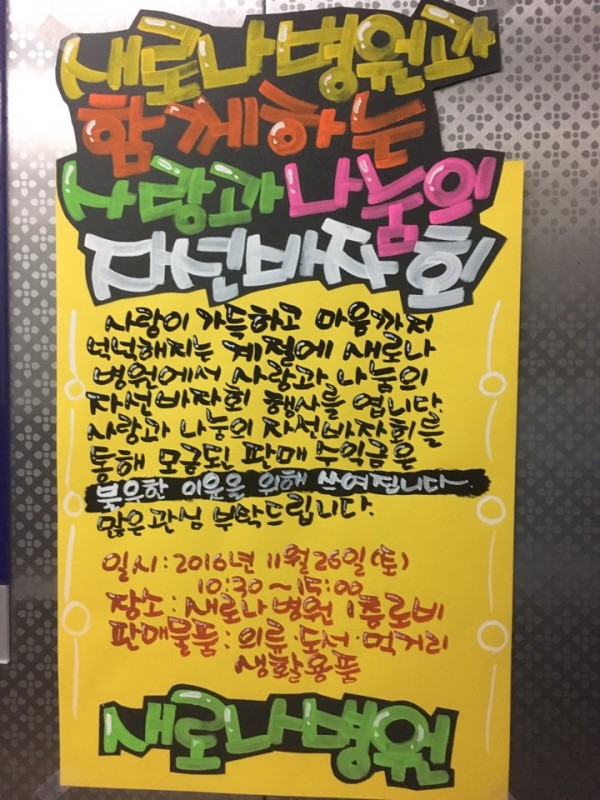 새로나병원과
함께하는
사랑과 나눔의
자선바자회
사랑이 가득하고 마음까지
넉넉해지는 계절에 새로나
병원에서 사랑과 나눔의
자선바자회 행사를 엽니다.
사랑과 나눔의 자선바자회를
통해 모금된 판매 수익금은
불우한 이웃을 위해 쓰여집니다.
많은관심 부탁드립니다.
일시:2016년 11월26일(토)
10:30~15:00
장소:새로나병원 1층로비
판매물품:의류.도서.먹거리
생활용품
새로나병원